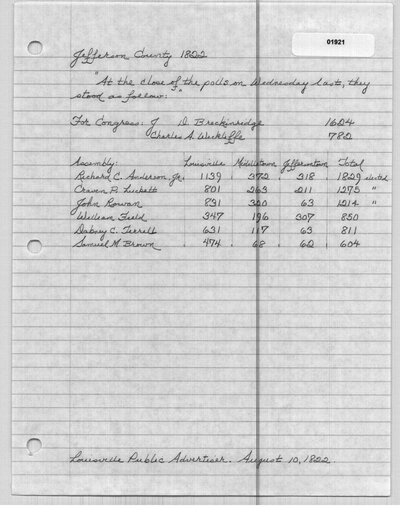 01921
Jefferson County 1822
"At the close of the polls on Wednesday last, they
stood as follow:"
For Congress: J D. Breckinridge 1624
Charles A. Wickliffe 782
Assembly: Louisville Middletown Jeffersontown Total
Richard C. Anderson Jr. 1139 372 318 1829 elected
Craven P. Luckett 801 263 211 1275 "
John Rowan 831 320 63 1214 "
William Field 347 196 307 850
Dabney C. Terrell 631 117 63 811
Samuel M. Brown 474 68 62 604
Louisville Public Advertiser. August 10, 1822